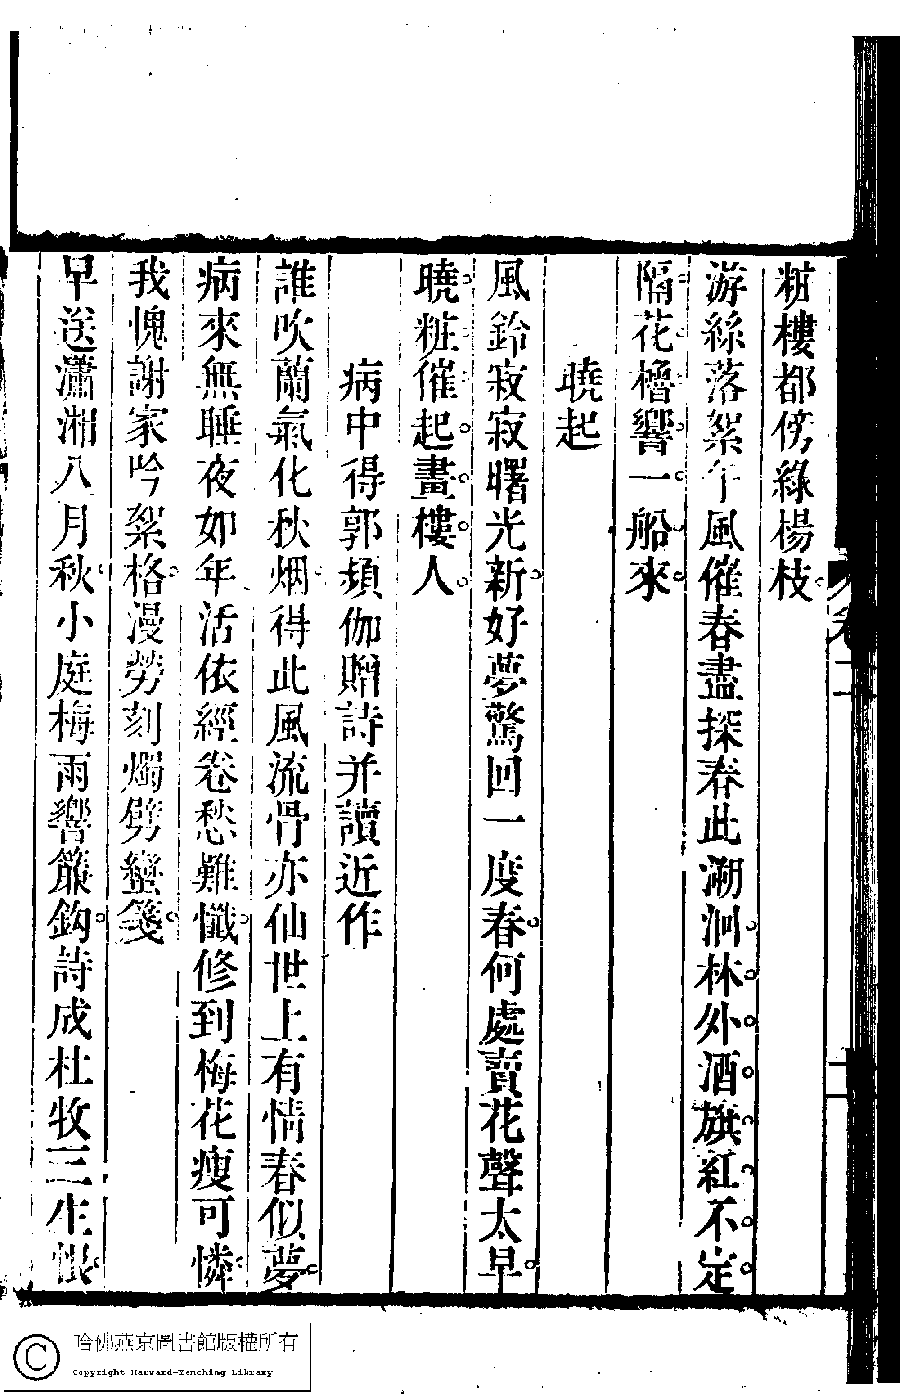 粧樓都傍綠楊枝
游絲落絮午風催春盡探春此溯洄林外酒旗紅不定
隔花櫓響一船來
曉起
風鈴寂寂曙光新好夢驚回一度春何處賣花聲太早
曉粧催起畫樓人
病中得郭頻伽贈詩并讀近作
誰吹蘭氣化秋烟得此風流骨亦仙世上有情春似夢
病來無睡夜如年活依經卷愁難懺修到梅花瘦可憐
我愧謝家吟絮格漫勞刻燭劈蠻箋
早送瀟湘八月秋小庭梅雨響簾鈎詩成杜牧三生恨
哈佛燕京圖書館版權所有
Copyright Harvard-Yenching Library